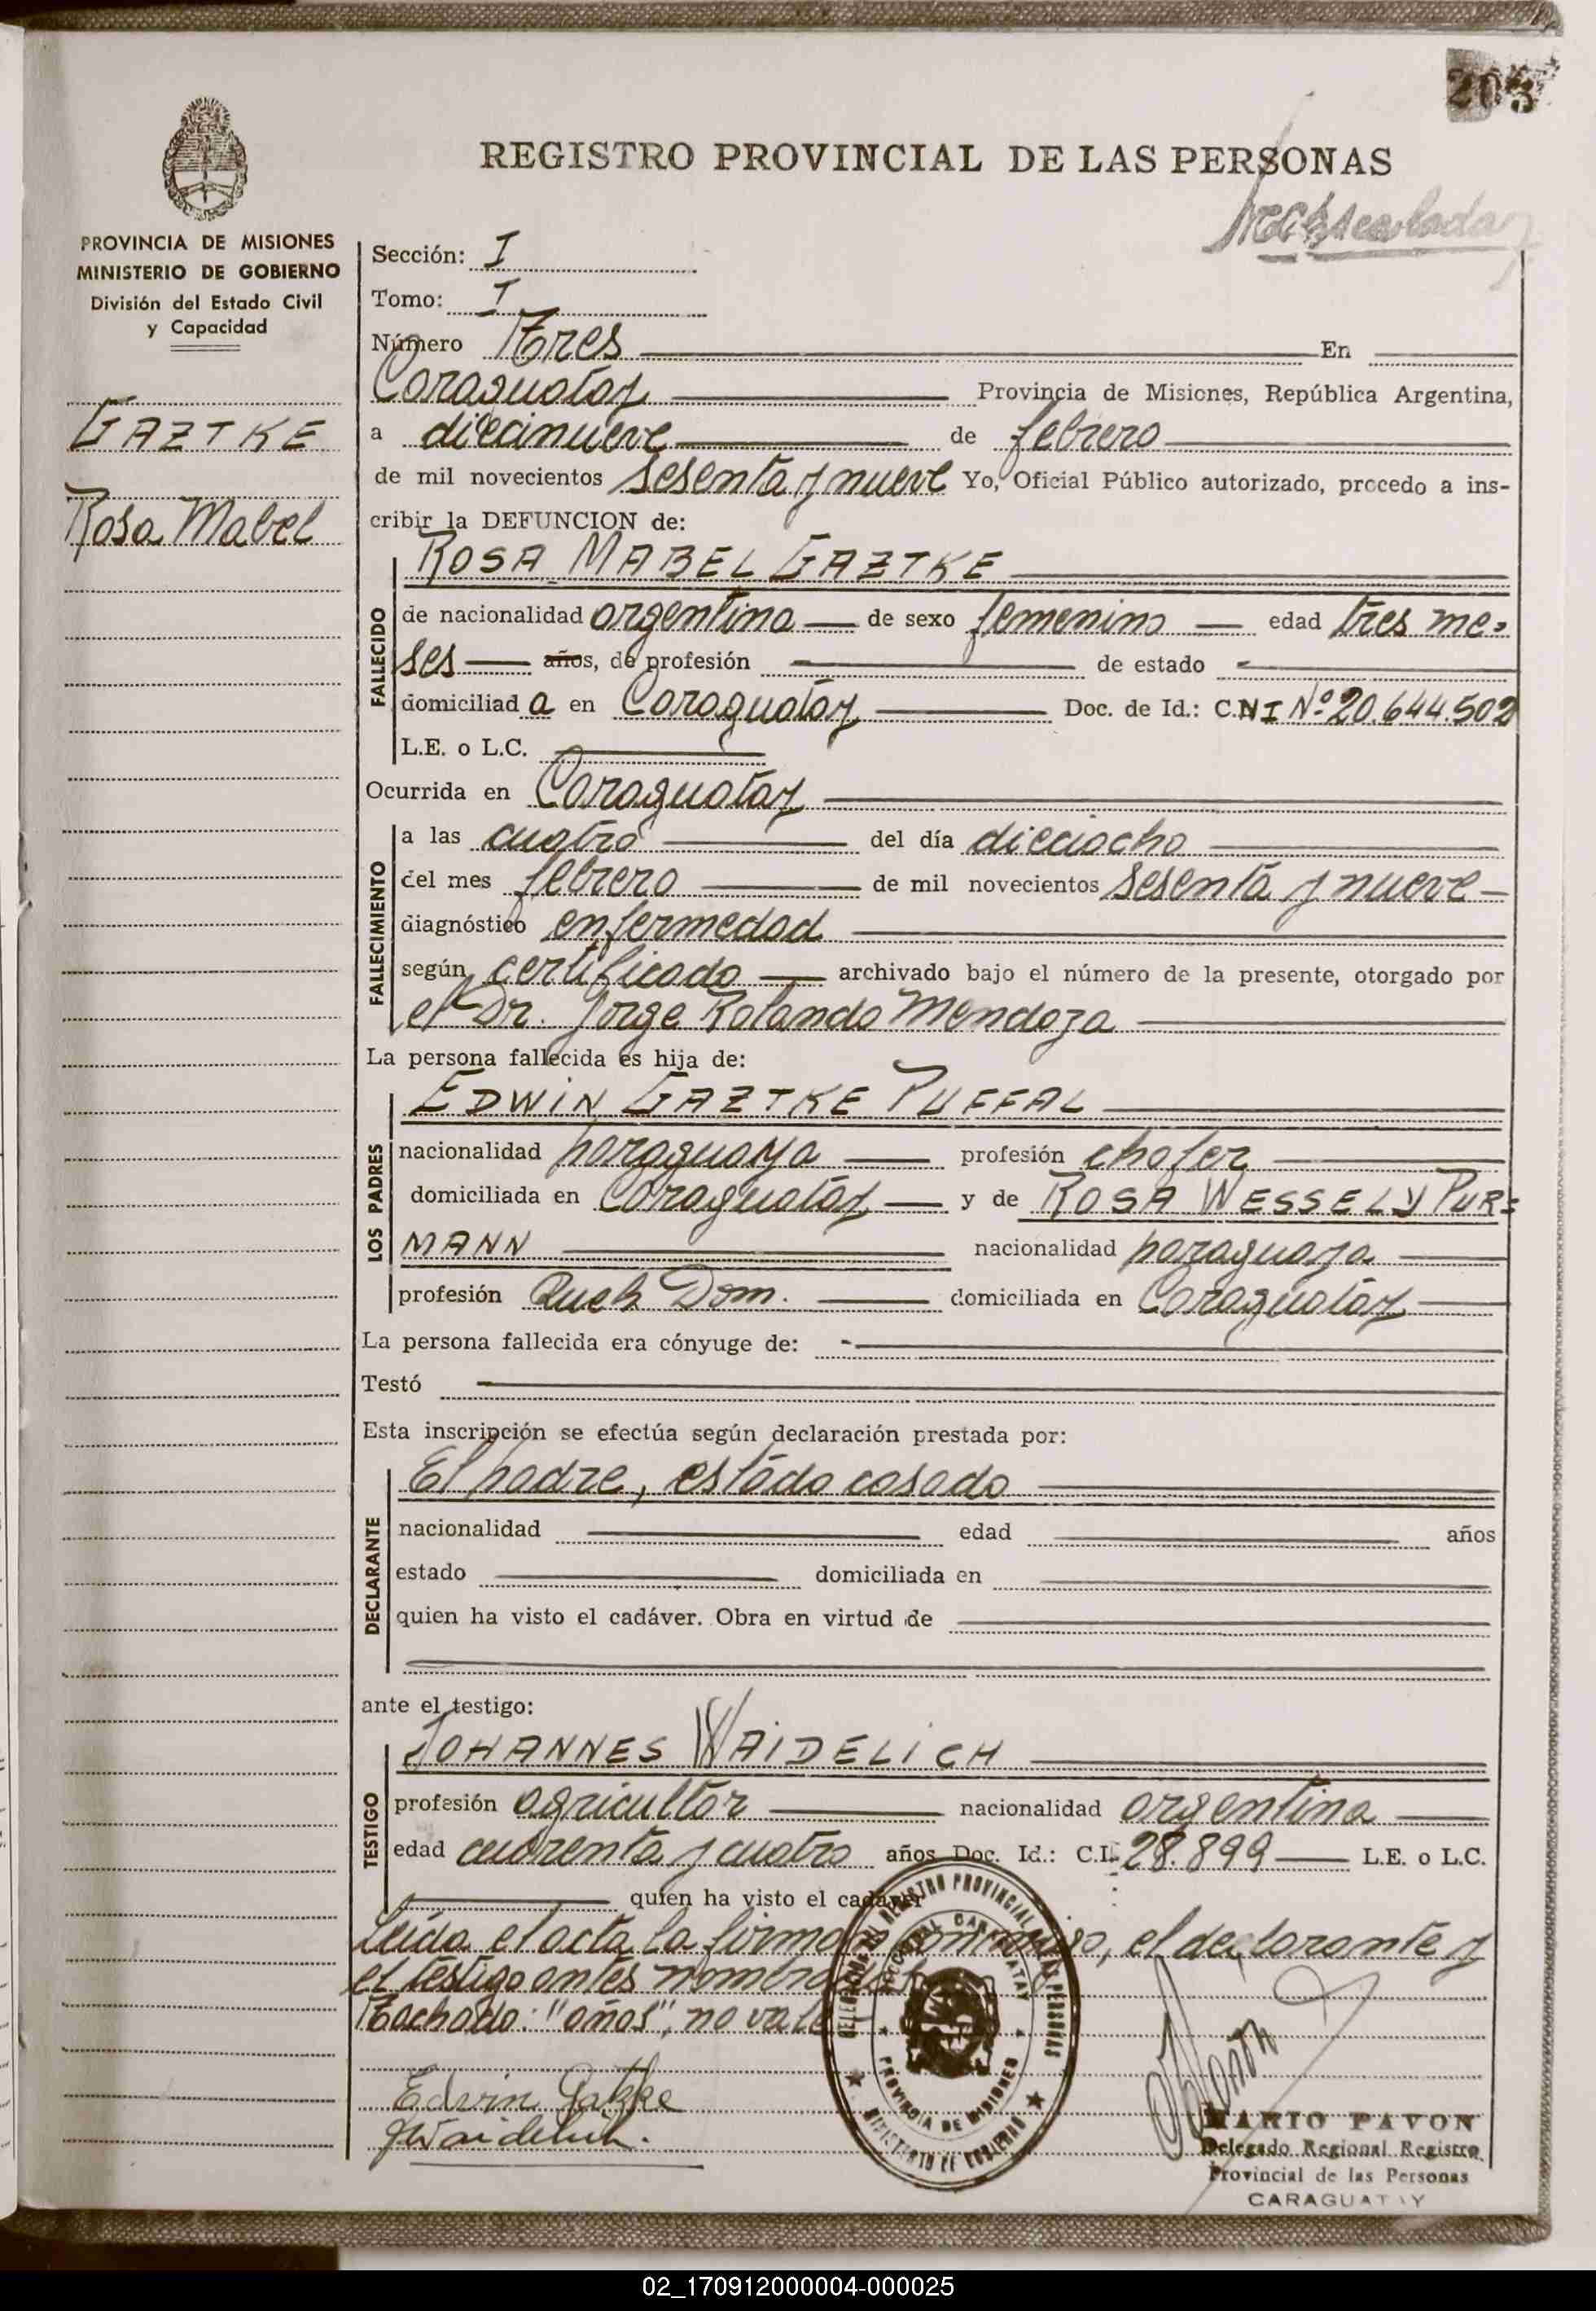 203
REGISTRO PROVINCIAL DE LAS PERSONAS
PROVINCIA DE MISIONES
MINISTERIO DE GOBIERNO
División del Estado Civil
y Capacidad
GAZTKE
Rosa Mabel
Sección: I
Tomo: I
Número Tres En
Caraguatay Provincia de Misiones, República Argentina,
a diecinueve de febrero
de mil novecientos sesenta y nueve Yo, Oficial Público autorizado, procedo a ins-
cribir la DEFUNCION de:
ROSA MABEL GAZTKE
FALLECIDO
de nacionalidad argentina de sexo femenino edad tres me-
ses años, de profesión de estado
domiciliad a en Caraguatay Doc. de Id.: C.N I Nº 20.644.502
L.E. o L.C.
Ocurrida en Caraguatay
FALLECIMIENTO
a las cuatro del día dieciocho
del mes febrero de mil novecientos sesenta y nueve
diagnóstico enfermedad
según certificado archivado bajo el número de la presente, otorgado por
el Dr. Jorge Rolando Mendoza
La persona fallecida es hija de:
LOS PADRES
EDWIN GAZTKE PUFFAL
nacionalidad paraguaya profesión chofer
domiciliada en Caraguatay y de ROSA WESSELY PUR=
MANN nacionalidad paraguaya
profesión Queh. Dom. domiciliada en Caraguatay
La persona fallecida era cónyuge de:
Testó
Esta inscripción se efectúa según declaración prestada por:
DECLARANTE
El padre, estado casado
nacionalidad edad años
estado domiciliada en
quien ha visto el cadáver. Obra en virtud de
ante el testigo:
TESTIGO
JOHANNES WAIDELICH
profesión agricultor nacionalidad argentina
edad cuarenta y cuatro años Doc. Id.: C.I. 28.899 L.E. o L.C.
quien ha visto el cadáver
Leída el acta la firman conmigo, el declarante y
el testigo antes nombrados
Tachado: "años", no vale
DELEGACION DEL REGISTRO PROVINCIAL DE LAS PERSONAS
SECCIONAL CARAGUATAY
PROVINCIA DE MISIONES
MINISTERIO DE GOBIERNO
Edwin Gatzke
JWaidelich.
MARIO PAVON
Delegado Regional Registro
Provincial de las Personas
CARAGUATAY
02_170912000004-000025